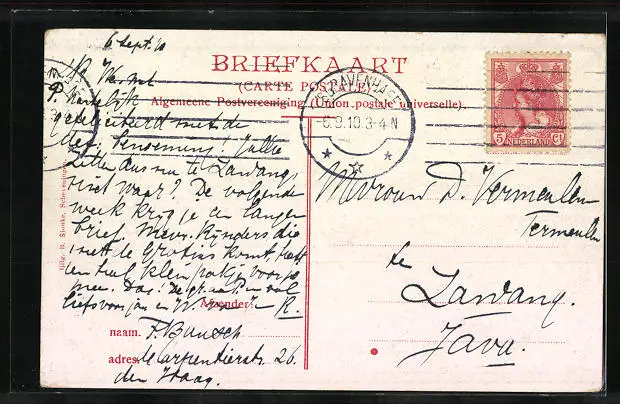 6 Sept. '10
BRIEFKAART
(CARTE POSTALE)
Algemeene Postvereeniging (Union postale universelle).
'S GRAVENHAGE
-6.9.10.3-4N
5 Ct
NEDERLAND
Hartelijk
gefeliciteerd met de
benoeming! Jullie
zitten dus nu te Lawang,
niet waar? De volgende
week krijg je een langen
brief. Mevr. Rijnders die
met de Grotius komt heeft
een heel klein pakje voor je
mee. Dag!
liefs voor jou en
Afzender:
naam. F. Bausch
adres. de Carpentierstr. 26.
den Haag.
Mevrouw D. Vermeulen
Termeulen
te
Lawang.
Java.
Uitg. B. Sjouke, Scheveningen